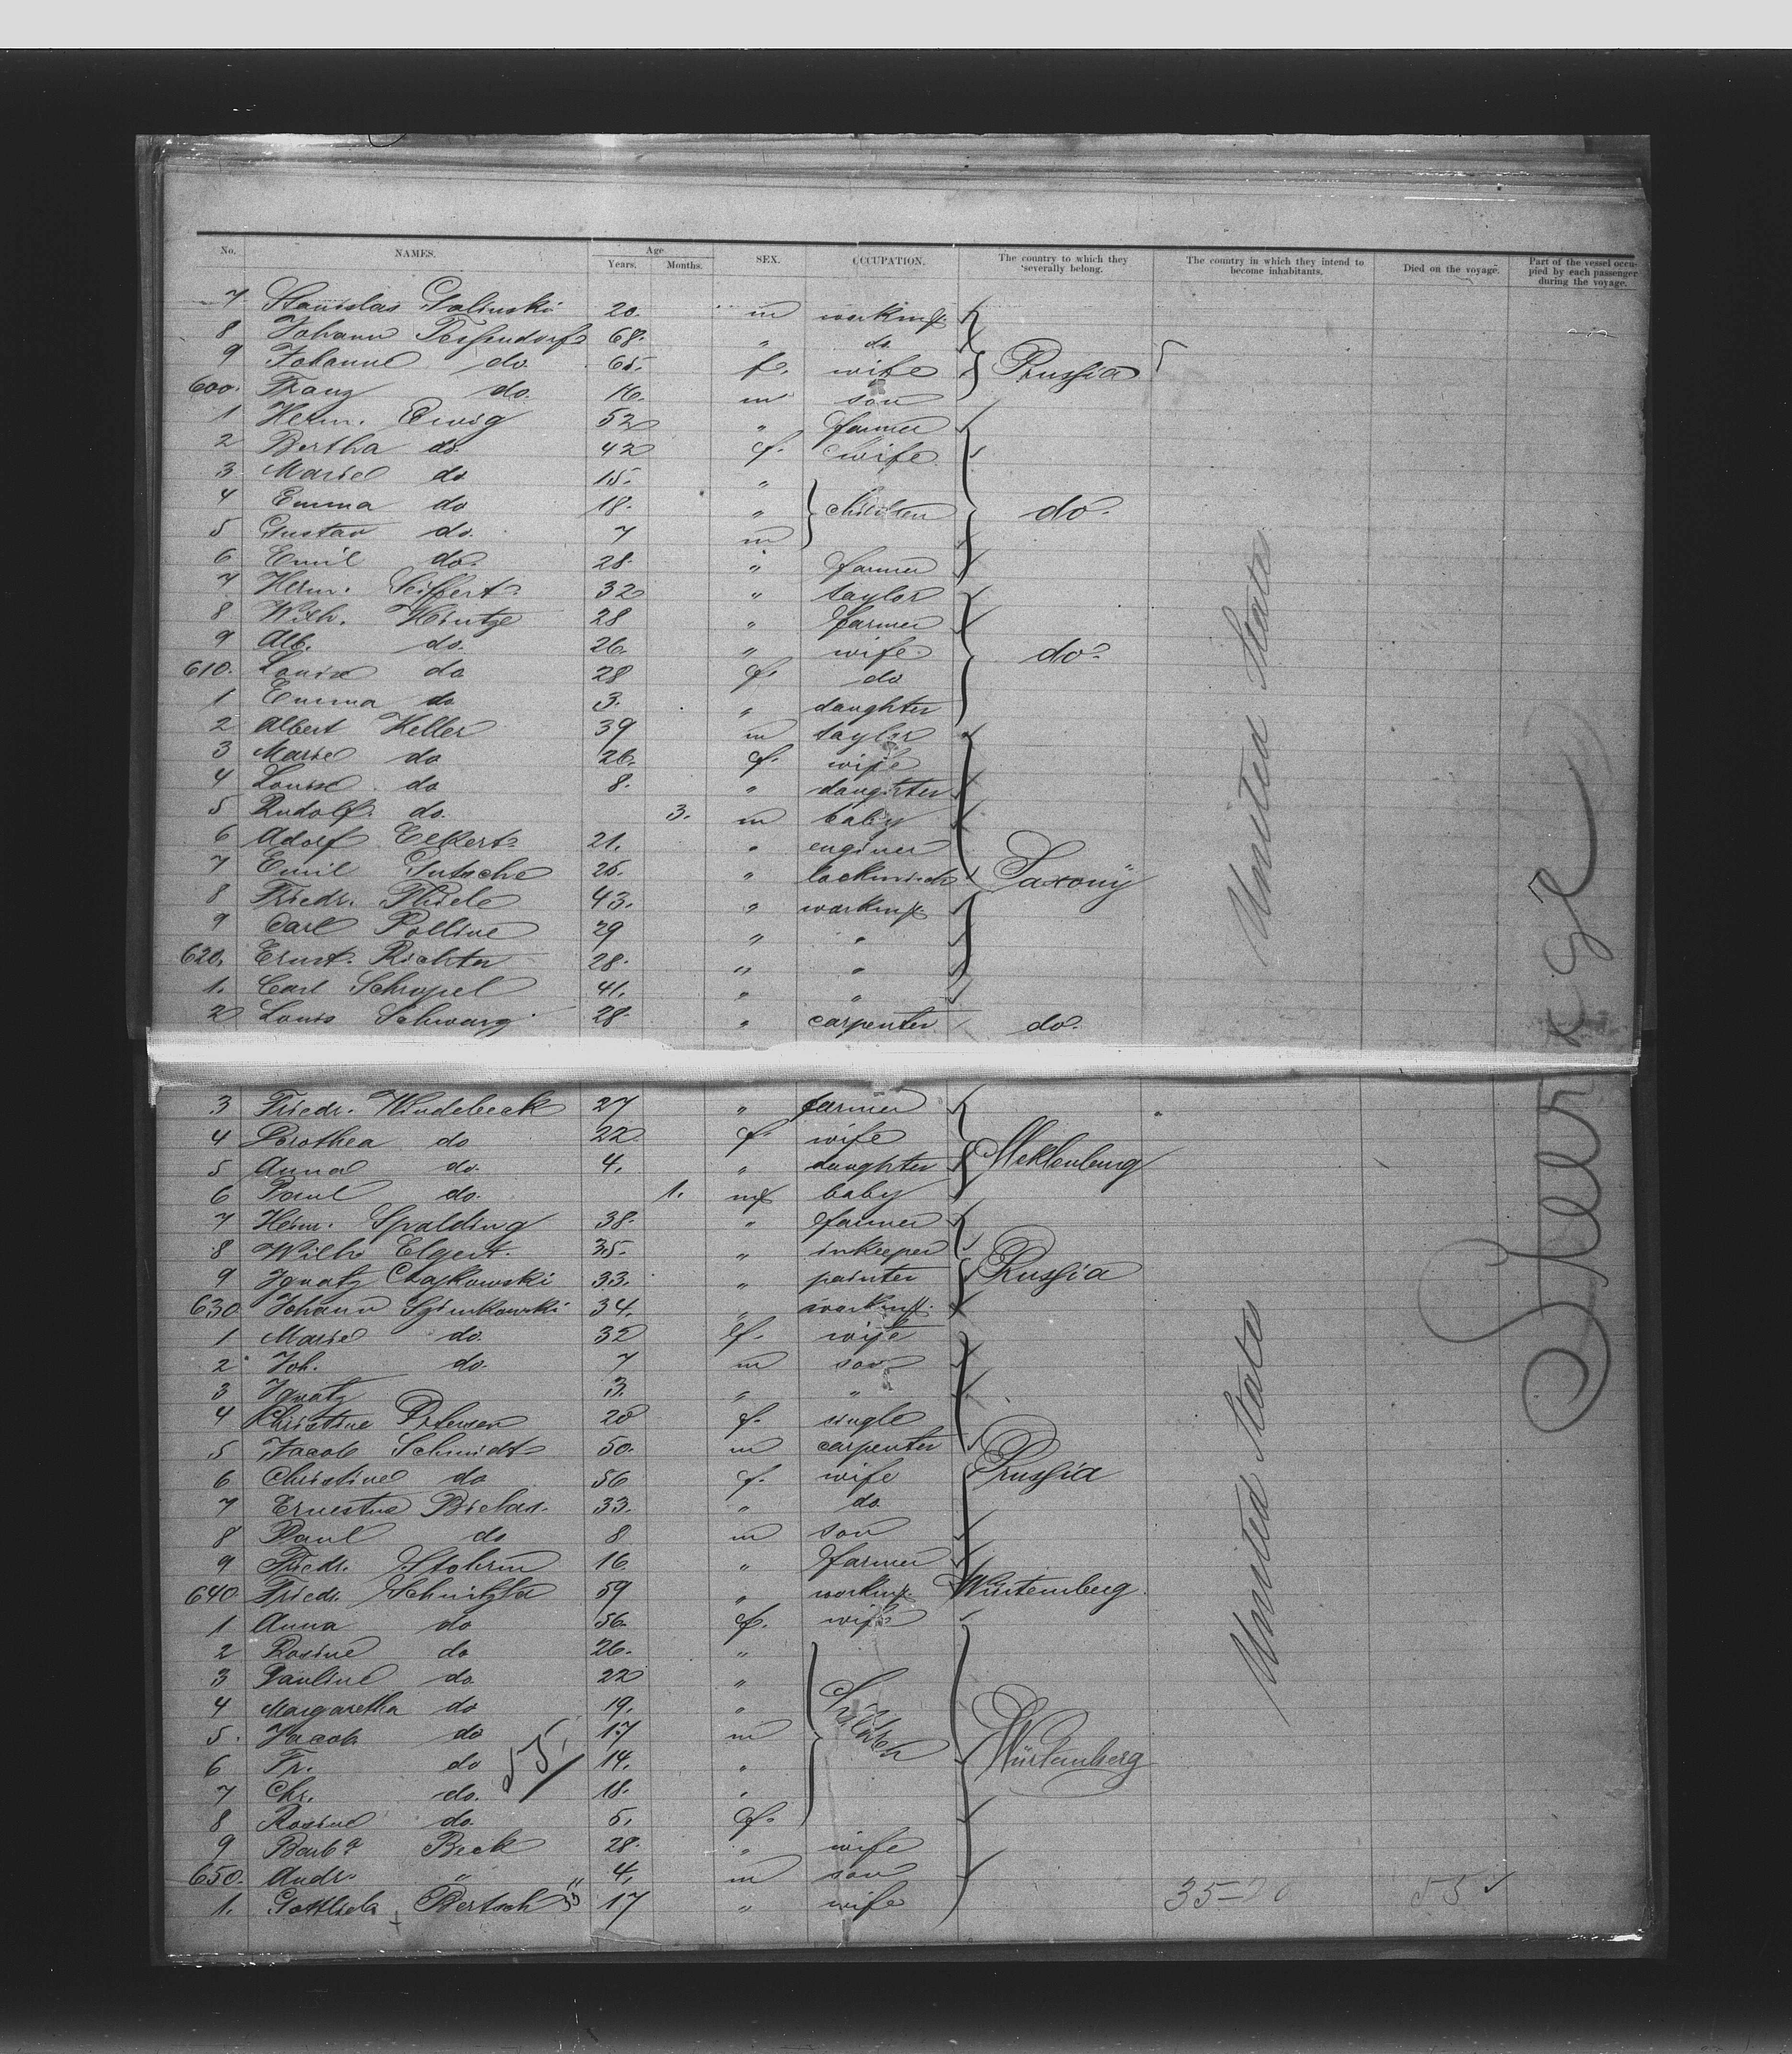 No. NAMES. Age Years. Months. SEX. OCCUPATION. The country to which they severally belong. The country in which they intend to become inhabitants. Died on the voyage. Part of the vessel occupied by each passenger during the voyage.
7 Stanislas Galinski 20. m workmg.
8 Johann Tessendorf 68. " do
9 Johanne do. 65. f. wife Prussia
600. Franz do. 16. m son
1 Herm. Ewig 52 " farmer
2 Bertha do. 42 f. wife
3 Marie do 15. "
4 Emma do 18. " children do.
5 Gustav do. 7 m
6 Emil do. 28. " farmer
7 Herm. Seiffert 32 " taylor
8 Wilh. Hintze 28 " farmer
9 Alb. do. 26. " wife do.
610. Louise do 28 f. do
1 Emma do 3. " daughter
2 Albert Keller 39 m taylor
3 Marie do 26. f. wife
4 Louise do 8. " daughter
5 Rudolf. do. 3. m baby
6 Adolf Eckert 21. " enginer
7 Emil Gutsche 25. " lockmich Saxony
8 Friedr. Thiele 43. " workmg.
9 Carl Polline 29 " "
620. Ernst. Richter 28. " "
1. Carl Schropel 41. " "
2 Louis Schwarz 28. " carpenter do.
United States
3 Friedr. Windebeck 27 " farmer
4 Dorothea do 22 f. wife Meklenburg
5 Anna do. 4. " daughter
6 Paul do. 1. m baby
7 Heinr. Spalding 38. " farmer
8 Wilh. Elgert. 35. " inkeeper
9 Ignatz Chajkowski 33. " painter Prussia
630 Johann Szimkowski 34. " workmg.
1 Marie do. 32 f. wife
2 Joh. do. 7 m son
3 Ignatz 3. " "
4 Christine Petersen 20 f. single
5 Jacob Schmidt 50. m carpenter
6 Christine do 56 f. wife Prussia
7 Ernestine Bielas. 33. " do.
8 Paul do 8 m son
9 Friedr. Stohrm 16. " farmer
640 Friedr. Schnitzla 59 " workmg. Würtemberg.
1 Anna do 56. f. wife
2 Rosine do 26. "
3 Pauline do. 22 "
4 Margaretha do 19. " Children
5. Jacob do 17 m
6 Fr. do 14. " Würtemberg
7 Chr. do. 18. "
8 Rosine do. 5. f.
9 Barba Beck 28. " wife
650. Andr. " 4. m son
1. Gottlieb Bertsch 17 " wife
United States
55
35-20 55